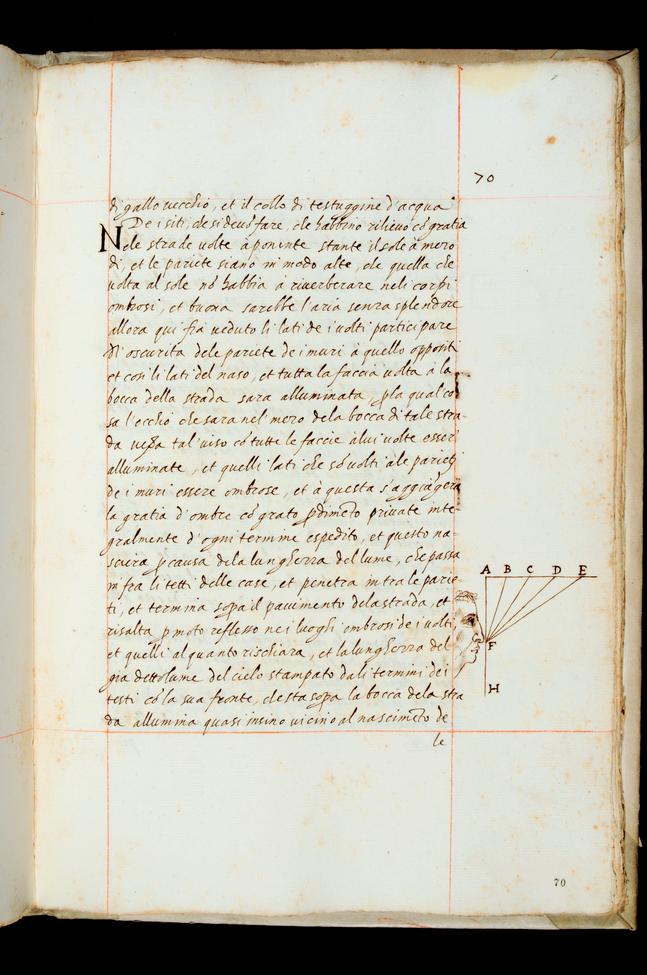 70
di gallo vecchio, et il collo di testuggine d'acqua
De i siti, che si devõ fare, che habbino rilievo cõ gratia
Nele strade volte à ponente stante il sole à mezo
di, et le pariete siano in modo alte, che quella che
volta al sole nõ habbia a riverberare neli corpi
ombrosi, et buona sarebbe l'aria senza splendore
allora qui fia veduto li lati de i volti participare
dl'oscurita dele pariete de i muri à quello oppositi
et cosi li lati del naso, et tutta la faccia volta à la
bocca della strada sara alluminata, p la qual co
sa l'occhio che sara nel mezo dela bocca di tale stra-
da tal viso cõ tutte le faccie a lui volte esser
alluminate, et quelli lati che sõ volti à le parieti
de i muri essere ombrose, et à questa s'aggiũgera
la gratia d'ombre cõ grato pdimẽto private inte-
gralmente d'ogni termine espedito, et questo na-
scera p causa dela lungherra del lume, che passa
infra li tetti delle case, et penetra intra le parie-
ti, et termina sopa il pavimento dela strada, et
risalta p moto reflesso ne i luoghi ombrosi de i volti
et quelli alquanto rischiara, et la lungherra del
gia detto lume del cielo stampato dali termini dei
tetti cõ la sua fronte, che sta sopa la bocca dela stra
da allumina quasi insino vicino al nascimẽto de
le
A B C D E
F
H
70